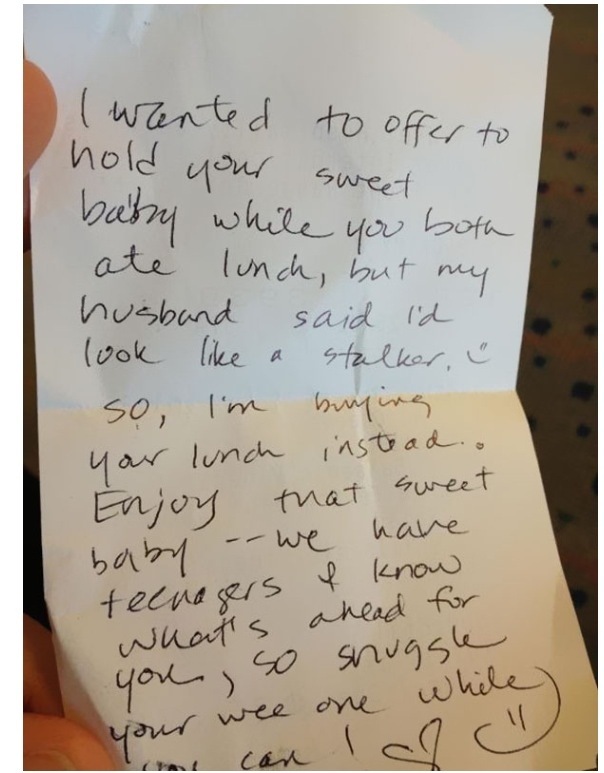 I wanted to offer to
hold your sweet
baby while you both
ate lunch, but my
husband said I'd
look like a stalker. :)
so, I'm buying
your lunch instead.
Enjoy that sweet
baby -- we have
teenagers & know
what's ahead for
you, so snuggle
your wee one while
you can! ♡ :)